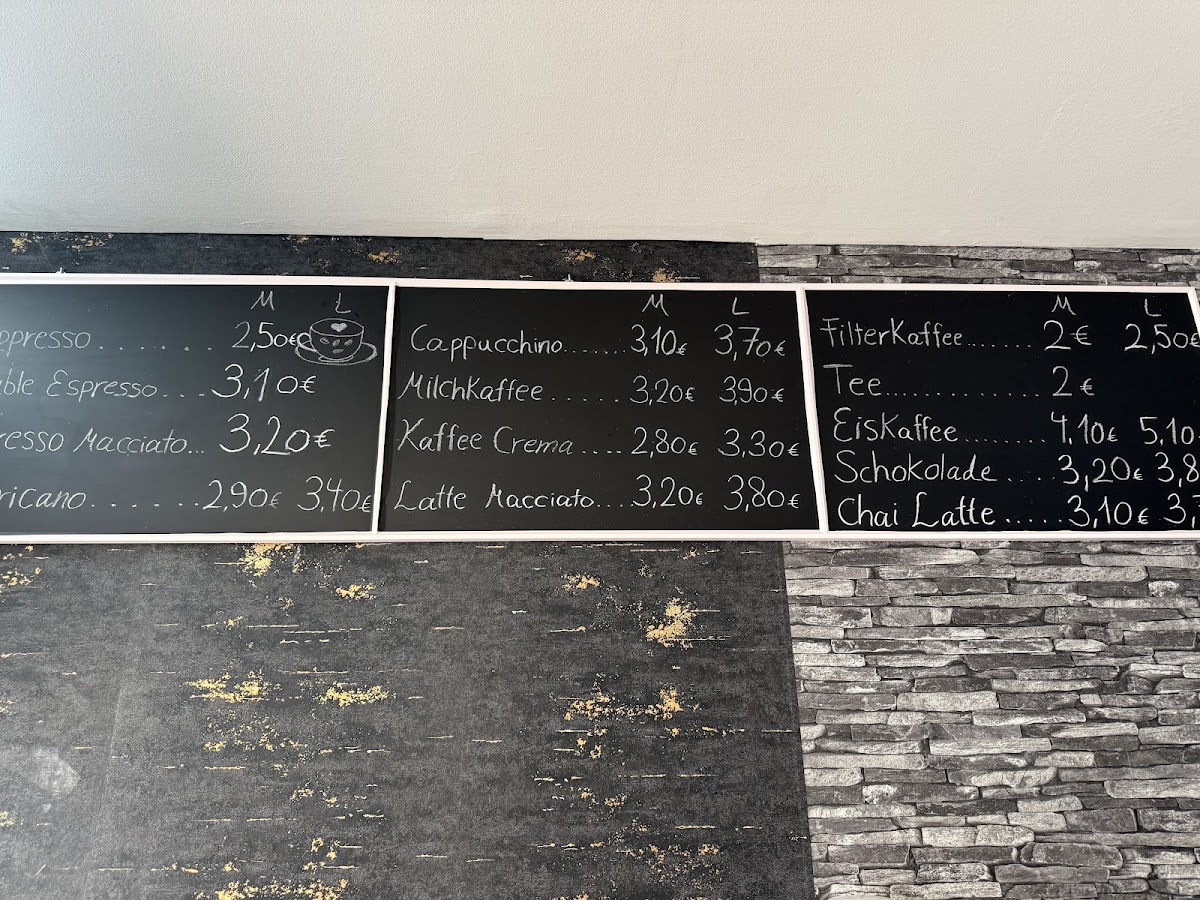 M L
2,50€
Espresso... 3,10€
Macciato... 3,20€
...... 2,90€ 3,40€
M L
Cappucchino....... 3,10€ 3,70€
Milchkaffee ...... 3,20€ 3,90€
Kaffee Crema .... 2,80€ 3,30€
Latte Macciato.... 3,20€ 3,80€
M L
Filterkaffee....... 2€ 2,50€
Tee............. 2€
Eiskaffee........ 4,10€ 5,10
Schokolade ..... 3,20€
Chai Latte ..... 3,10€